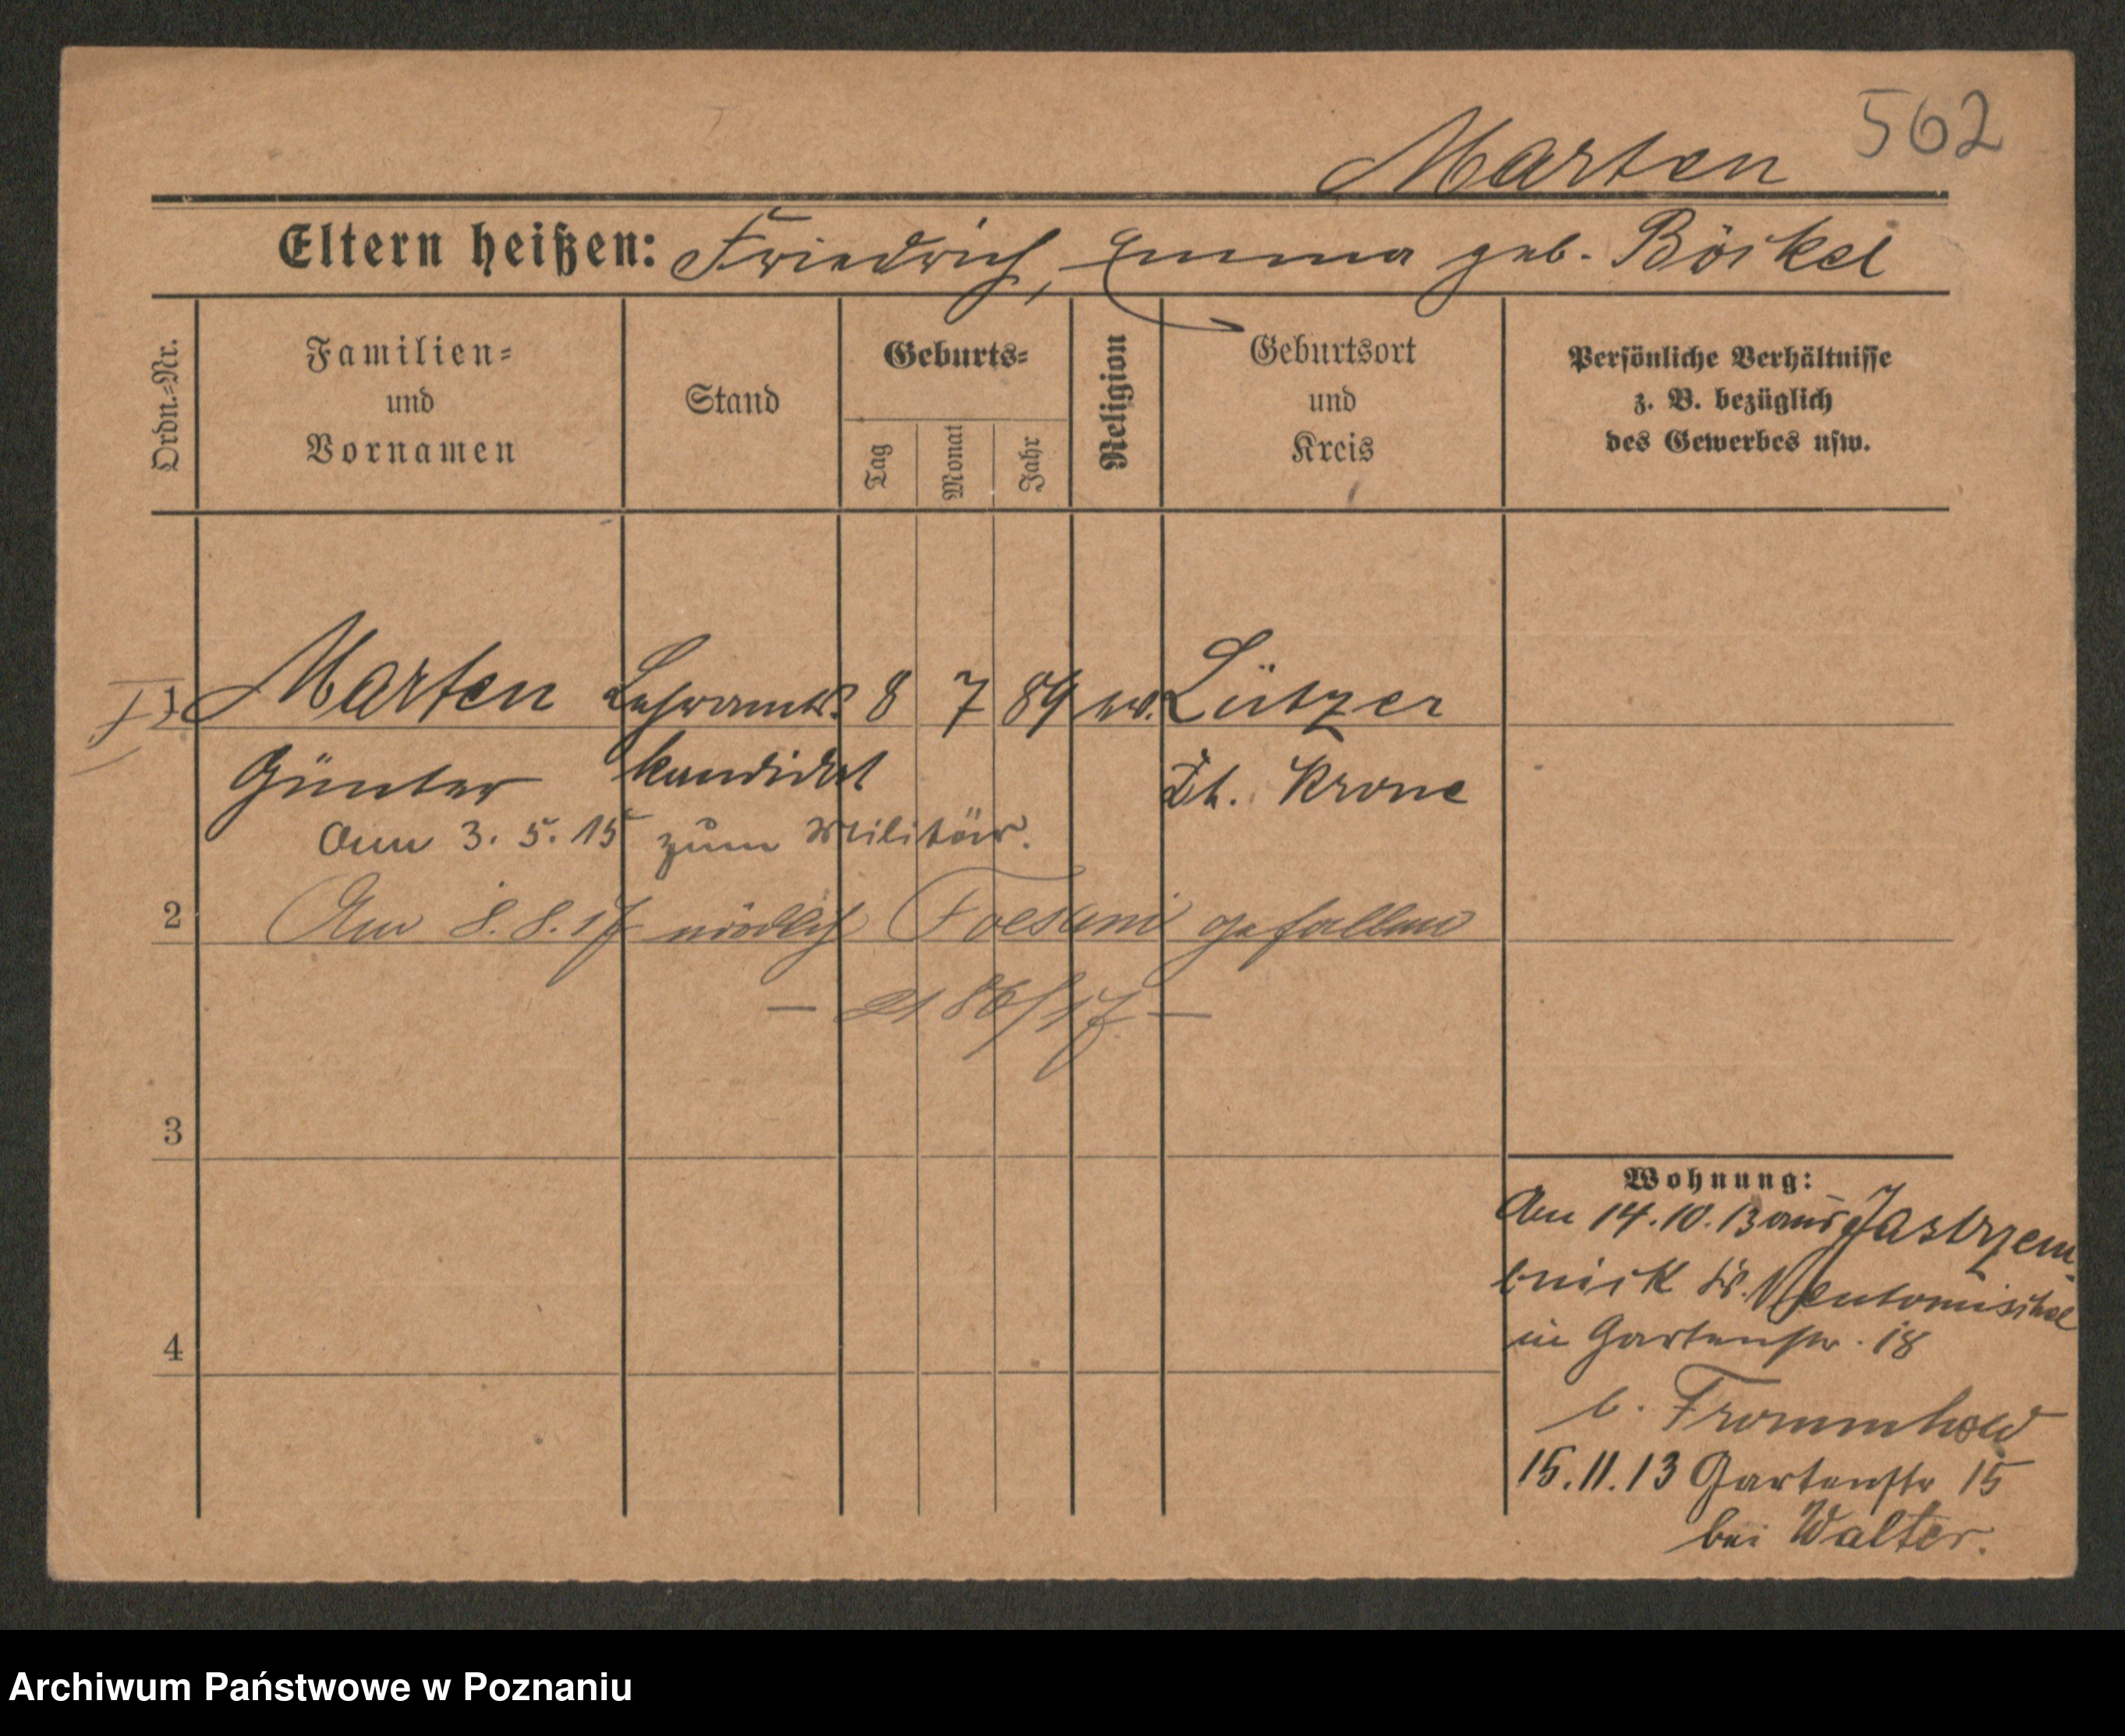 562
Marten
Eltern heißen: Friedrich, Emma geb. Böckel
Ordn.=Nr.
Familien= und Vornamen
Stand
Geburts=
Tag
Monat
Jahr
Religion
Geburtsort und Kreis
Persönliche Verhältnisse z. B. bezüglich des Gewerbes usw.
1 Marten Lehramts 8 7 89 ev. Lützer
Günter kandidat Dt. Krone
Am 3. 5. 15 zum Militär.
2 Am 8. 8. 17 nördlich Focsani gefallen
— 86/17 —
3
4
Wohnung:
Am 14. 10. 13 aus Jastrzem
bnick Kr. Neutomischel
in Gartenstr. 18
b. Frommhold
15. 11. 13 Gartenstr 15
bei Walter.
Archiwum Państwowe w Poznaniu